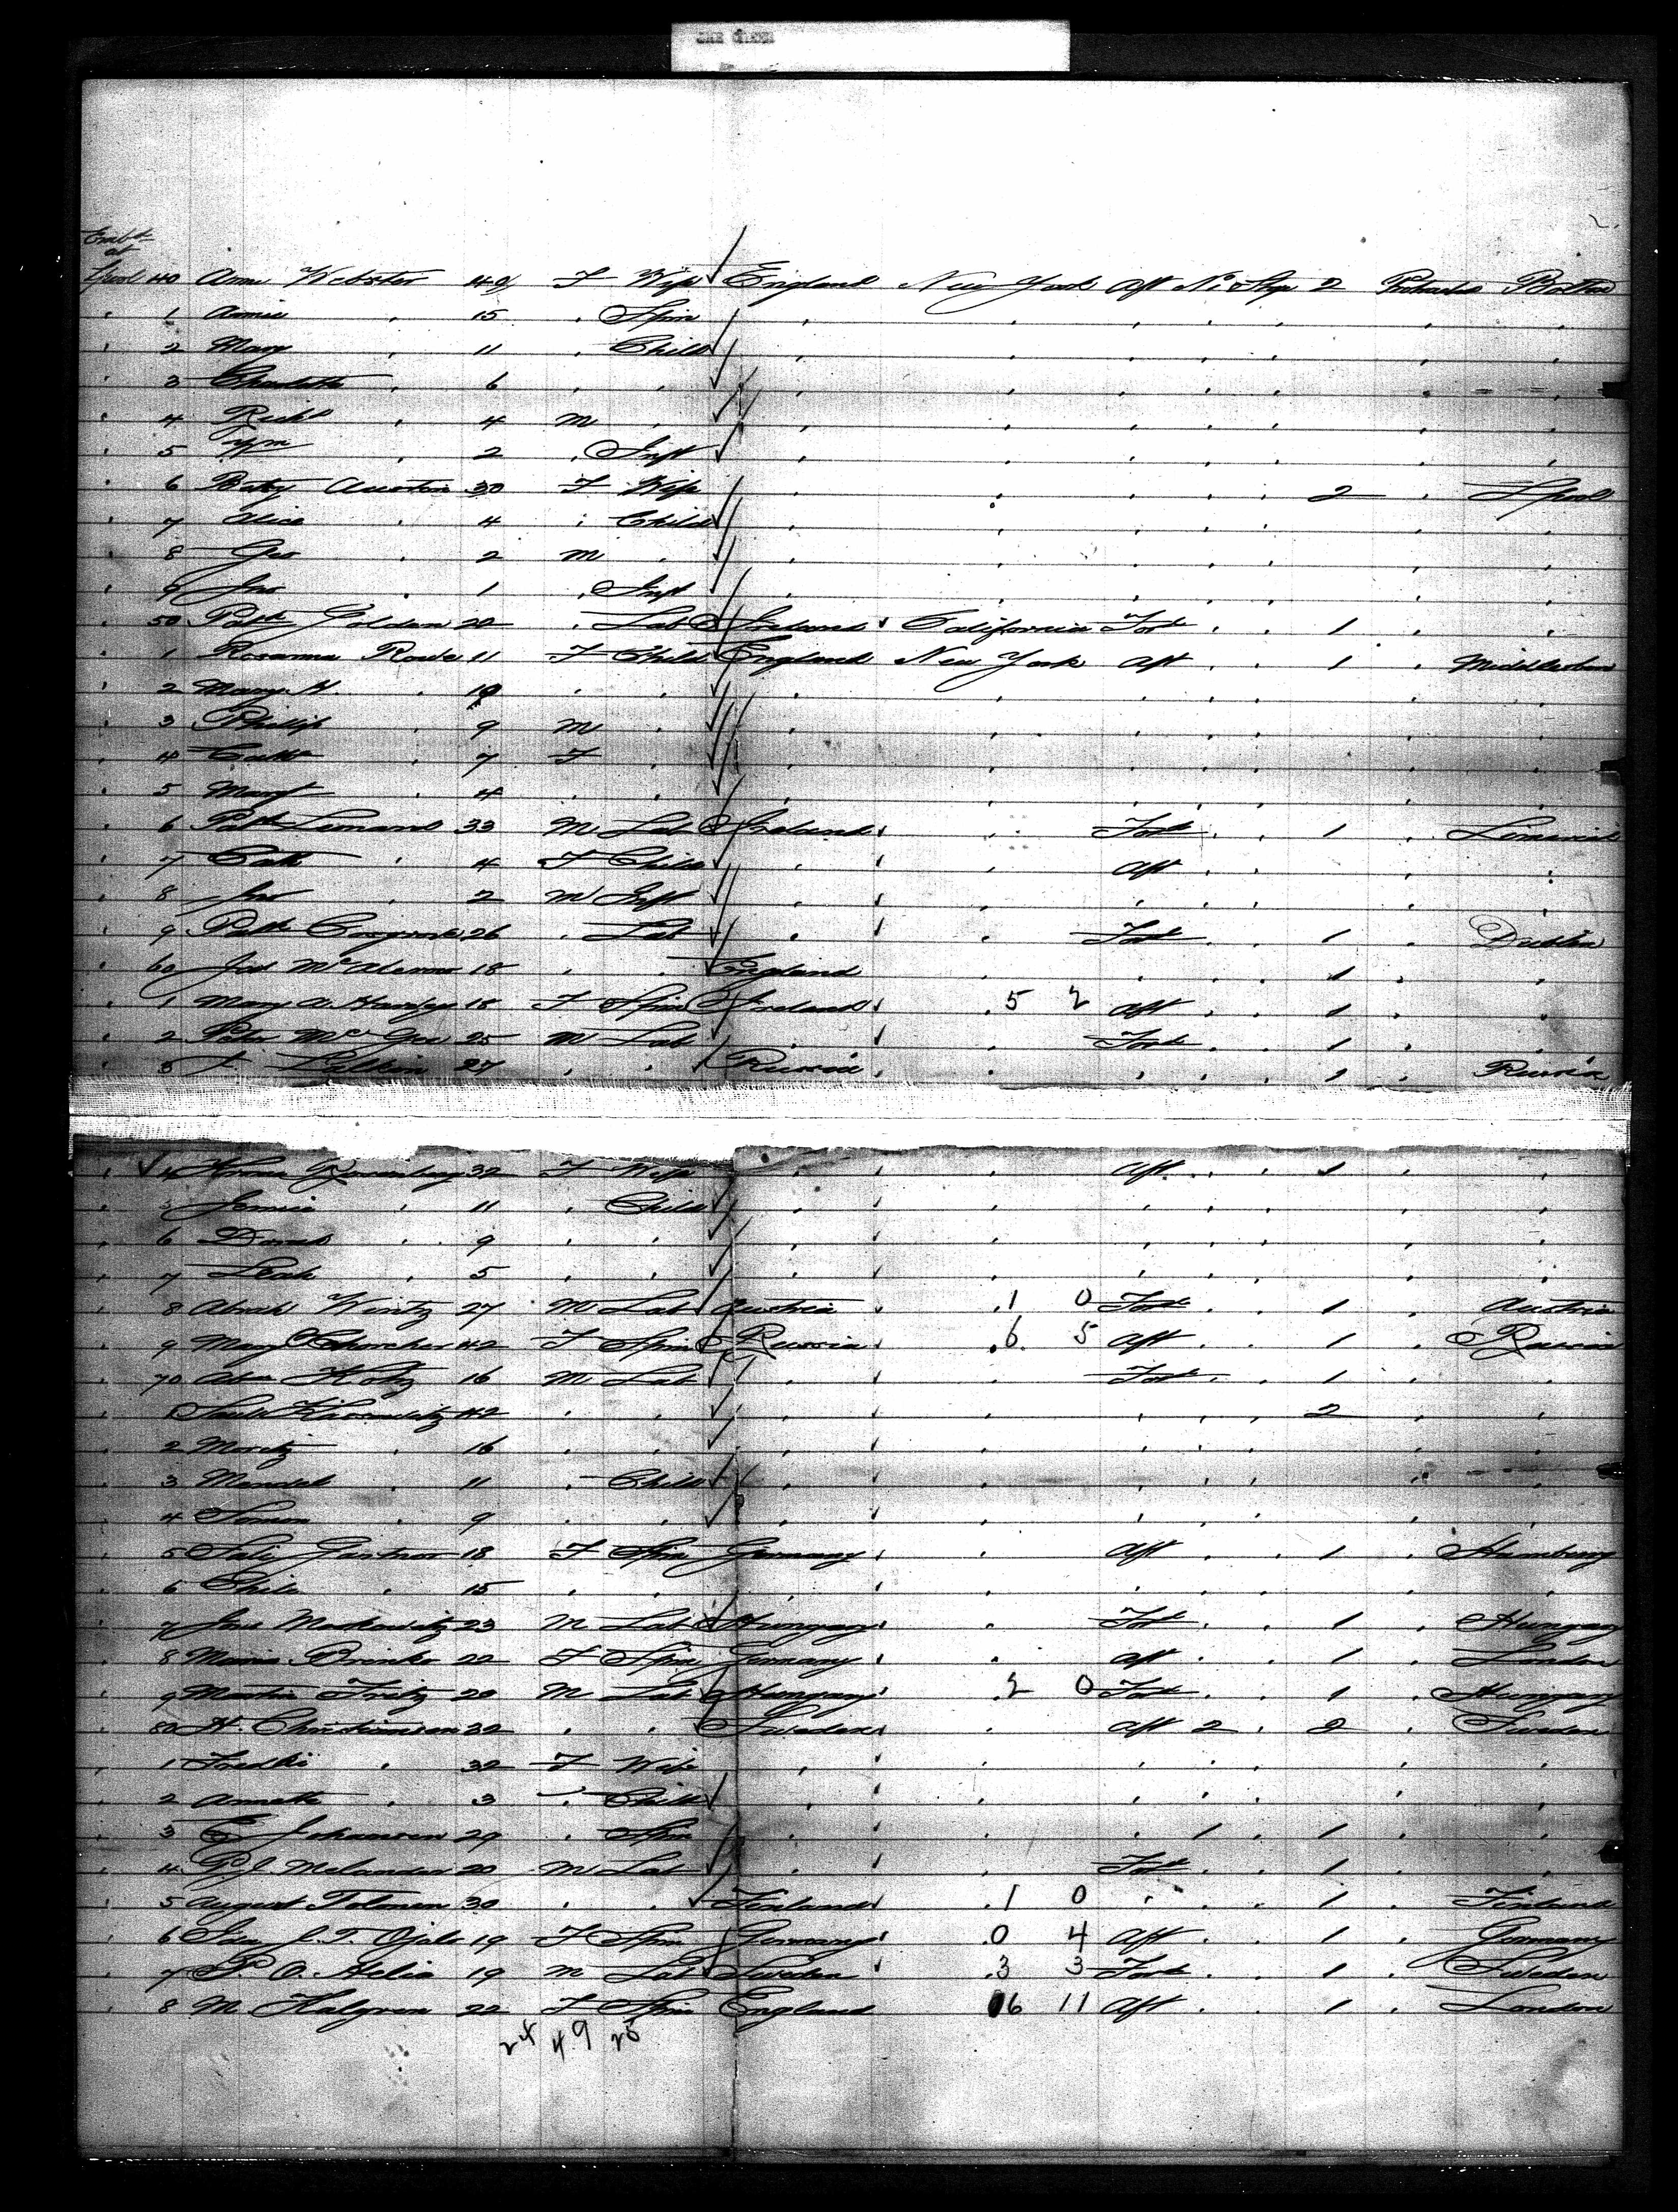 2.
Embkd
at
Lpool 40 Ann Webster 42 F Wife England New York Aft No Stge 2 Protracted Bolton
" 1 Annie " 15 " Spin " " " " " " "
" 2 Mary " 11 " Child " " " " " " "
" 3 Charlotte " 6 " " " " " " " " "
" 4 Richd " 4 M " " " " " " " "
" 5 Wm " 2 " Inft " " " " " " "
" 6 Betsy Austin 30 F Wife " " " " " 2 " Lpool
" 7 Alice " 4 " Child " " " " " " "
" 8 Geo " 2 M " " " " " " " "
" 9 Jno " 1 " Inft " " " " " " "
" 50 Patk Golden 20 " Lab Ireland California Fort " " 1 " "
" 1 Rosanna Rowe 11 F Child England New York Aft " " 1 " Middlesbro
" 2 Mary H. " 10 " " " " " " " " "
" 3 Phillip " 9 M " " " " " " " "
" 4 Cath " 7 F " " " " " " " "
" 5 Margt " 4 " " " " " " " " "
" 6 Patk 33 M Lab Ireland " Fort " " 1 " Limerick
" 7 Cath " 4 F Child " " Aft " " " "
" 8 Jno " 2 M Inft " " " " " " "
" 9 Patk Cosgrove 26 " Lab " " Fort " " 1 " Dublin
" 60 Jas 18 " " England " " " " 1 " "
" 1 Mary A. 18 F Spin Ireland 5 2 Aft " " 1 " "
" 2 Peter McGee 25 M Lab " " Fort " " 1 " "
" 3 27 " " Russia " " " " 1 " Russia
4 32 F Wife " " Aft " " 1 " "
5 Jennie " 11 " Child " " " " " " "
" 6 " 9 " " " " " " " " "
" 7 Leah " 5 " " " " " " " " "
" 8 Abrah 27 M Lab Austria 1 0 Fort " " 1 " Austria
" 9 Mary 42 F Spin Russia 6 5 Aft " " 1 " Russia
" 70 Holtz 16 M Lab " " Fort " " 1 " "
" 1 42 " " " " " " " 2 " "
" 2 Moritz " 16 " " " " " " " " "
" 3 Mendel " 11 " Child " " " " " " "
" 4 " 9 " " " " " " " " "
" 5 18 F Spin Germany " Aft " " 1 " Hamburg
" 6 " 15 " " " " " " " " "
" 7 Moskowitz 23 M Lab Hungary " Fort " " 1 " Hungary
" 8 22 F Spin Germany " Aft " " 1 " London
" 9 Martin Fritz 20 M Lab Hungary 2 0 Fort " " 1 " Hungary
" 80 H. Christiansen 32 " " Sweden " Aft 2 " 2 " Sweden
" 1 " 32 F Wife " " " " " " "
" 2 Annette " 3 " Child " " " " " " "
" 3 E Johansen 29 " Spin " " " 1 " 1 " "
" 4 P. J. Melander 20 M Lab " " Fort " " 1 " "
" 5 August 30 " " Finland 1 0 " " " 1 " Finland
" 6 J. T. Ojala 19 F Spin Germany 0 4 Aft " " 1 " Germany
" 7 P. O. Helin 19 M Lab Sweden 3 3 Fort " " 1 " Sweden
" 8 M. Halgren 22 F Spin England 06 11 Aft " " 1 " London
24 49 25